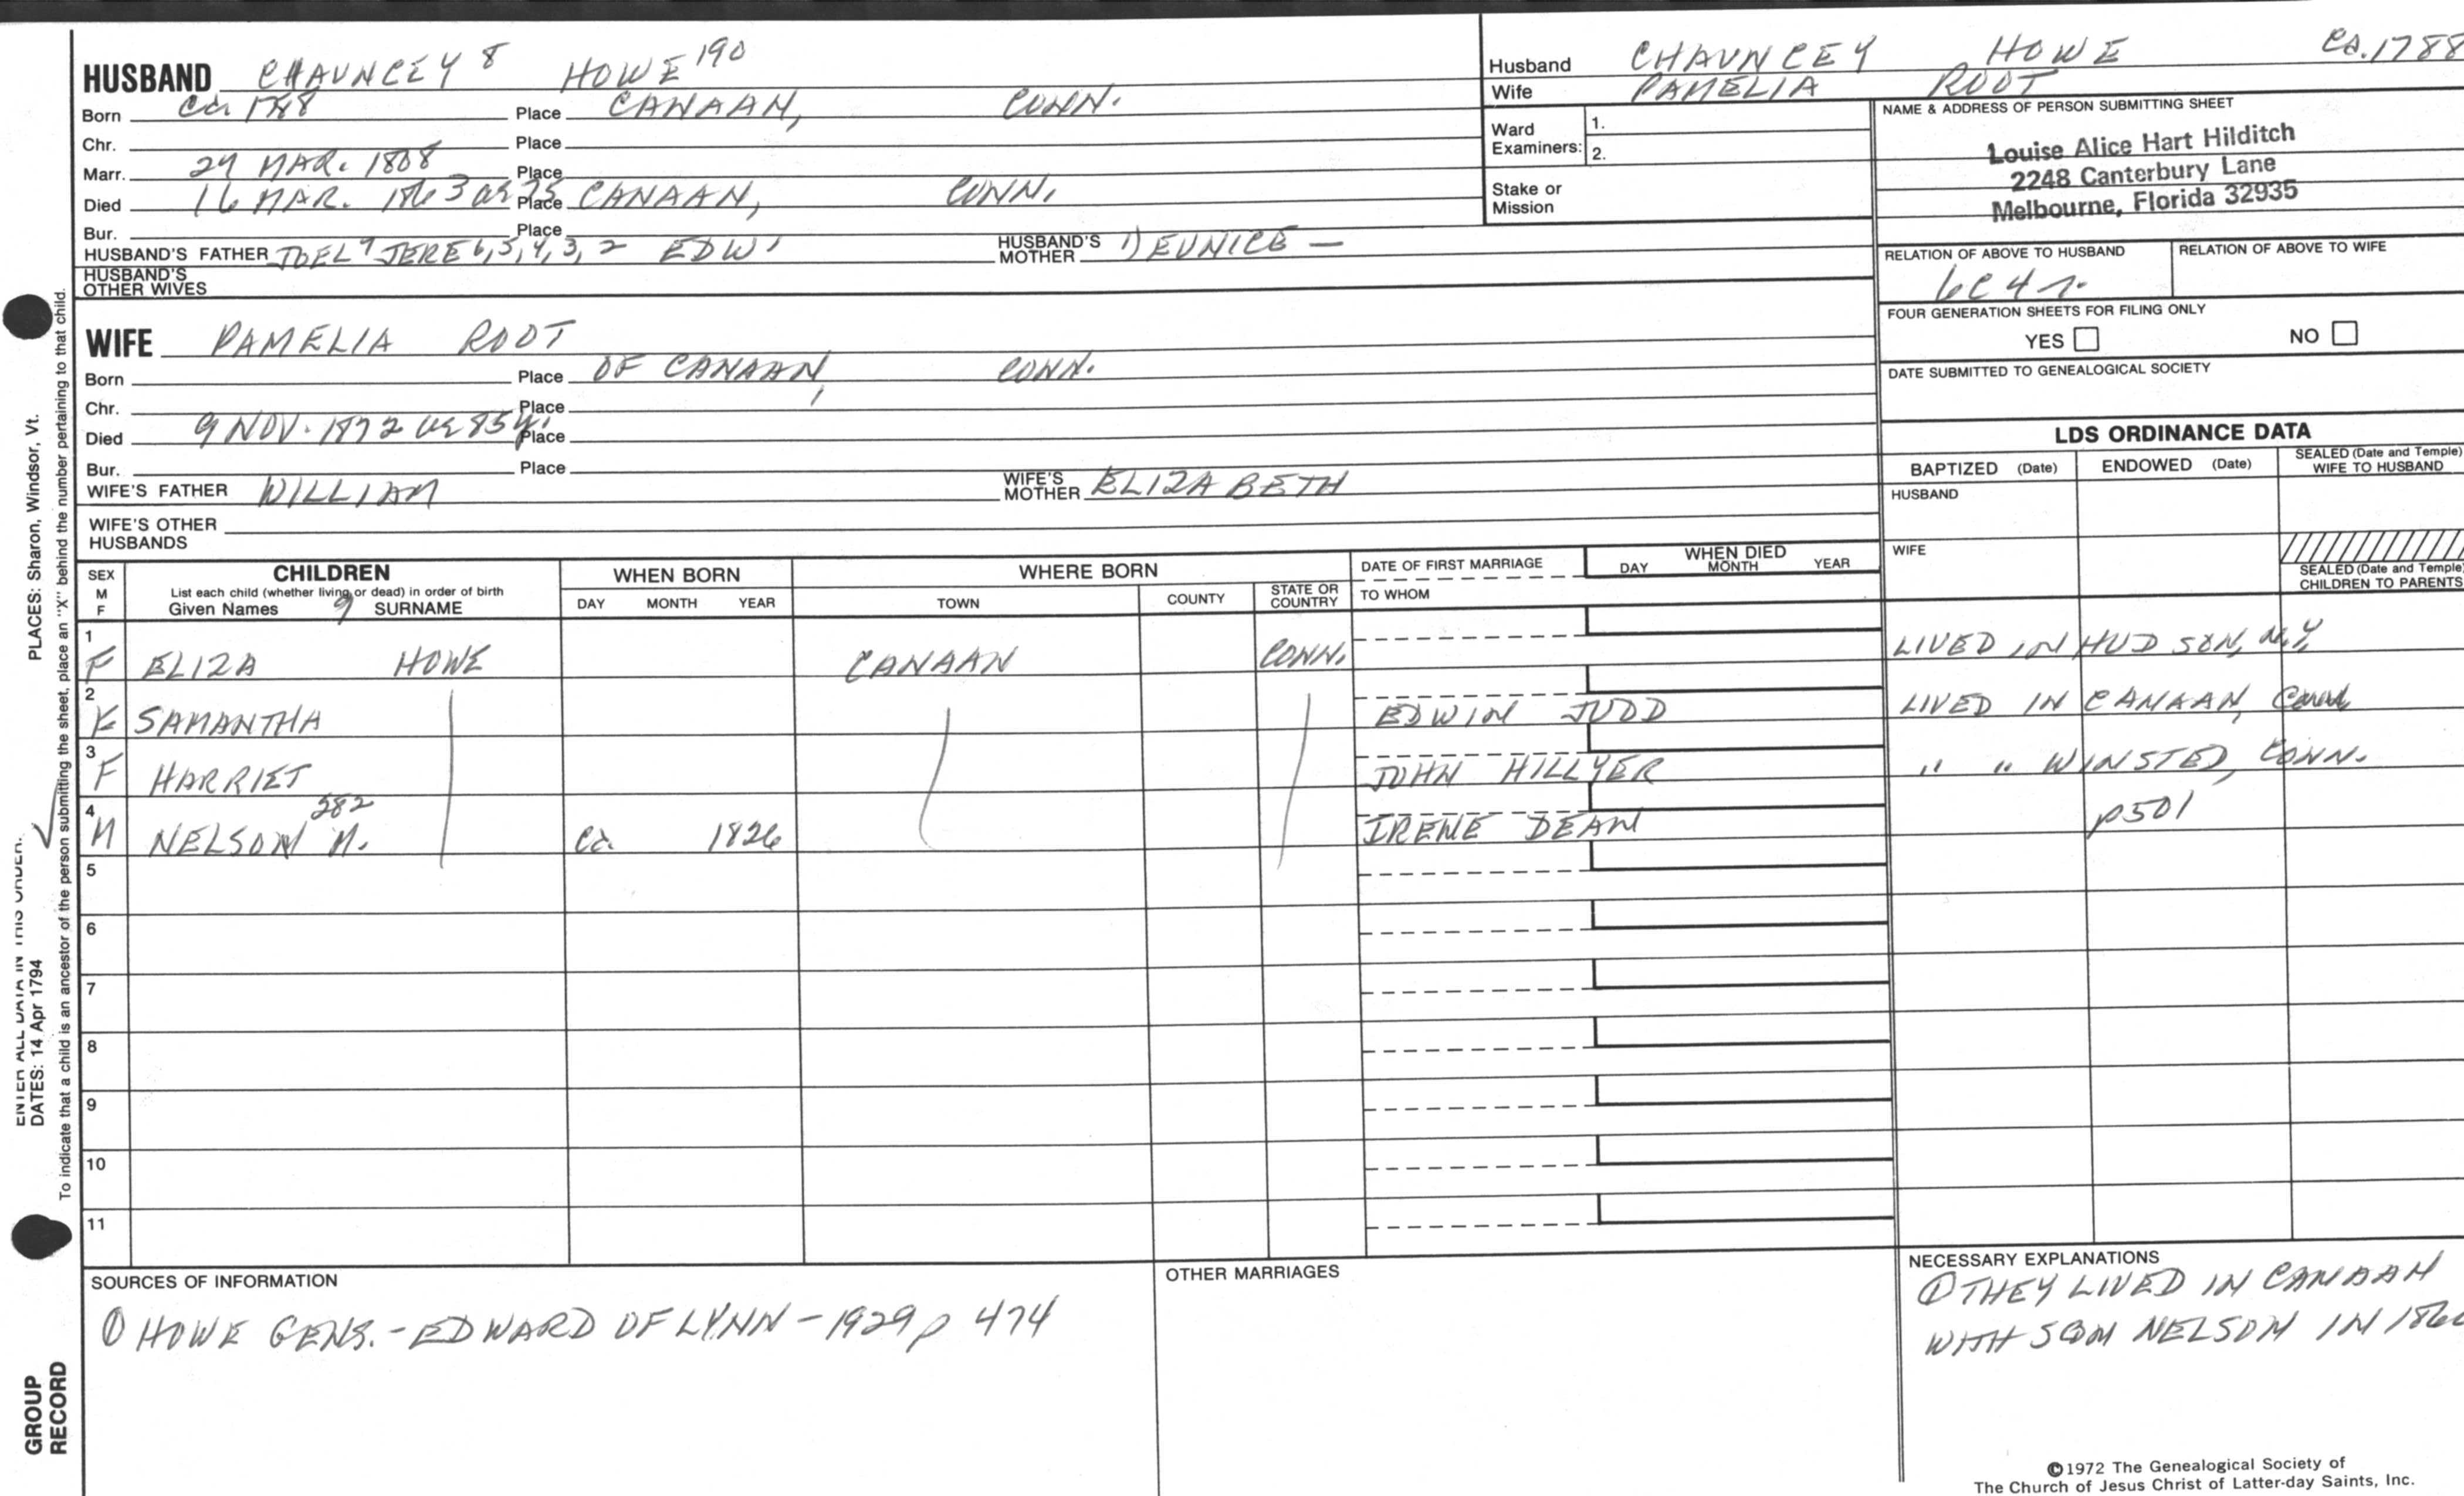 HUSBAND CHAUNCEY 8 HOWE 190
Born Ca 1788 Place CANAAN, CONN.
Chr. Place
Marr. 24 MAR. 1808 Place
Died 16 MAR. 1863 ae 75 Place CANAAN, CONN.
Bur. Place
HUSBAND'S FATHER JOEL 7 JERE 6,5,4,3,2 EDW' HUSBAND'S MOTHER 1) EUNICE —
HUSBAND'S OTHER WIVES
WIFE PAMELIA ROOT
Born Place OF CANAAN, CONN.
Chr. Place
Died 9 NOV. 1872 ae 85 y. Place
Bur. Place
WIFE'S FATHER WILLIAM WIFE'S MOTHER ELIZABETH
WIFE'S OTHER HUSBANDS
Husband CHAUNCEY HOWE Ca. 1788
Wife PAMELIA ROOT
Ward Examiners: 1.
2.
Stake or Mission
NAME & ADDRESS OF PERSON SUBMITTING SHEET
Louise Alice Hart Hilditch
2248 Canterbury Lane
Melbourne, Florida 32935
RELATION OF ABOVE TO HUSBAND RELATION OF ABOVE TO WIFE
6C4r.
FOUR GENERATION SHEETS FOR FILING ONLY
YES NO
DATE SUBMITTED TO GENEALOGICAL SOCIETY
LDS ORDINANCE DATA
BAPTIZED (Date) ENDOWED (Date) SEALED (Date and Temple) WIFE TO HUSBAND
HUSBAND
WIFE
SEALED (Date and Temple) CHILDREN TO PARENTS
SEX M F
CHILDREN
List each child (whether living or dead) in order of birth
Given Names 9 SURNAME
WHEN BORN
DAY MONTH YEAR
WHERE BORN
TOWN COUNTY STATE OR COUNTRY
DATE OF FIRST MARRIAGE
TO WHOM
WHEN DIED
DAY MONTH YEAR
1
F ELIZA HOWE CANAAN CONN. LIVED IN HUDSON, N.Y.
2
F SAMANTHA EDWIN JUDD LIVED IN CANAAN, Conn
3
F HARRIET JOHN HILLYER " " WINSTED, CONN.
4
M NELSON M. 282 Ca. 1826 IRENE DEAN p501
5
6
7
8
9
10
11
SOURCES OF INFORMATION
① HOWE GENS. - EDWARD OF LYNN - 1929 p 474
OTHER MARRIAGES
NECESSARY EXPLANATIONS
① THEY LIVED IN CANAAN
WITH SON NELSON IN 1860
©1972 The Genealogical Society of
The Church of Jesus Christ of Latter-day Saints, Inc.
PLACES: Sharon, Windsor, Vt.
To indicate that a child is an ancestor of the person submitting the sheet, place an "X" behind the number pertaining to that child.
ENTER ALL DATA IN THIS ORDER:
DATES: 14 Apr 1794
GROUP
RECORD